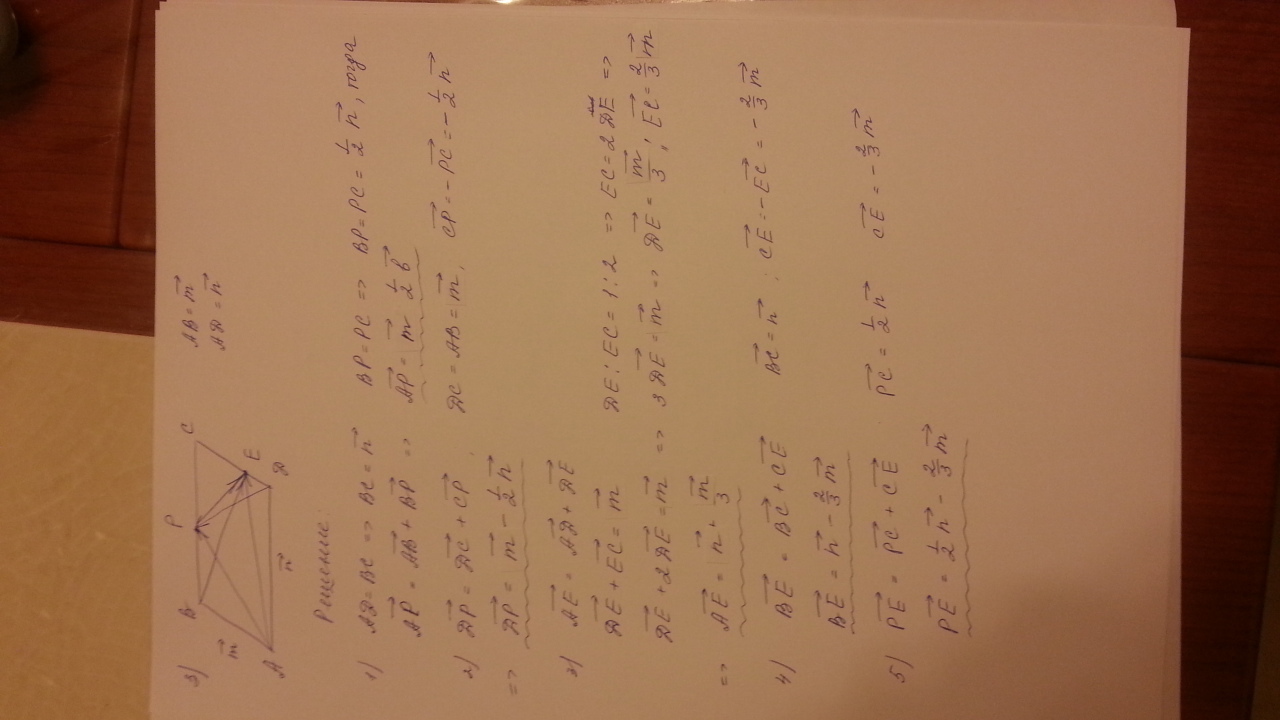 3)
B P C
AB⃗ = m⃗
m⃗
AD⃗ = n⃗
E
A n⃗ D
Решение:
1) AD = BC => BC⃗ = n⃗ BP = PC => BP = PC = 1/2 n⃗, тогда
AP⃗ = AB⃗ + BP⃗ => AP⃗ = m⃗ 1/2 b⃗
2) DP⃗ = DC⃗ + CP⃗ DC⃗ = AB⃗ = m⃗, CP⃗ = -PC⃗ = -1/2 n⃗
=> DP⃗ = m⃗ - 1/2 n⃗
3) AE⃗ = AD⃗ + DE⃗
DE⃗ + EC⃗ = m⃗ DE : EC = 1 : 2 => EC = 2 DE =>
DE⃗ + 2DE⃗ = m⃗ => 3DE⃗ = m⃗ => DE⃗ = m⃗/3, EC⃗ = 2/3 m⃗
=> AE⃗ = n⃗ + m⃗/3
4) BE⃗ = BC⃗ + CE⃗ BC⃗ = n⃗ ; CE⃗ = -EC⃗ = -2/3 m⃗
BE⃗ = n⃗ - 2/3 m⃗
5) PE⃗ = PC⃗ + CE⃗ PC⃗ = 1/2 n⃗ CE⃗ = -2/3 m⃗
PE⃗ = 1/2 n⃗ - 2/3 m⃗